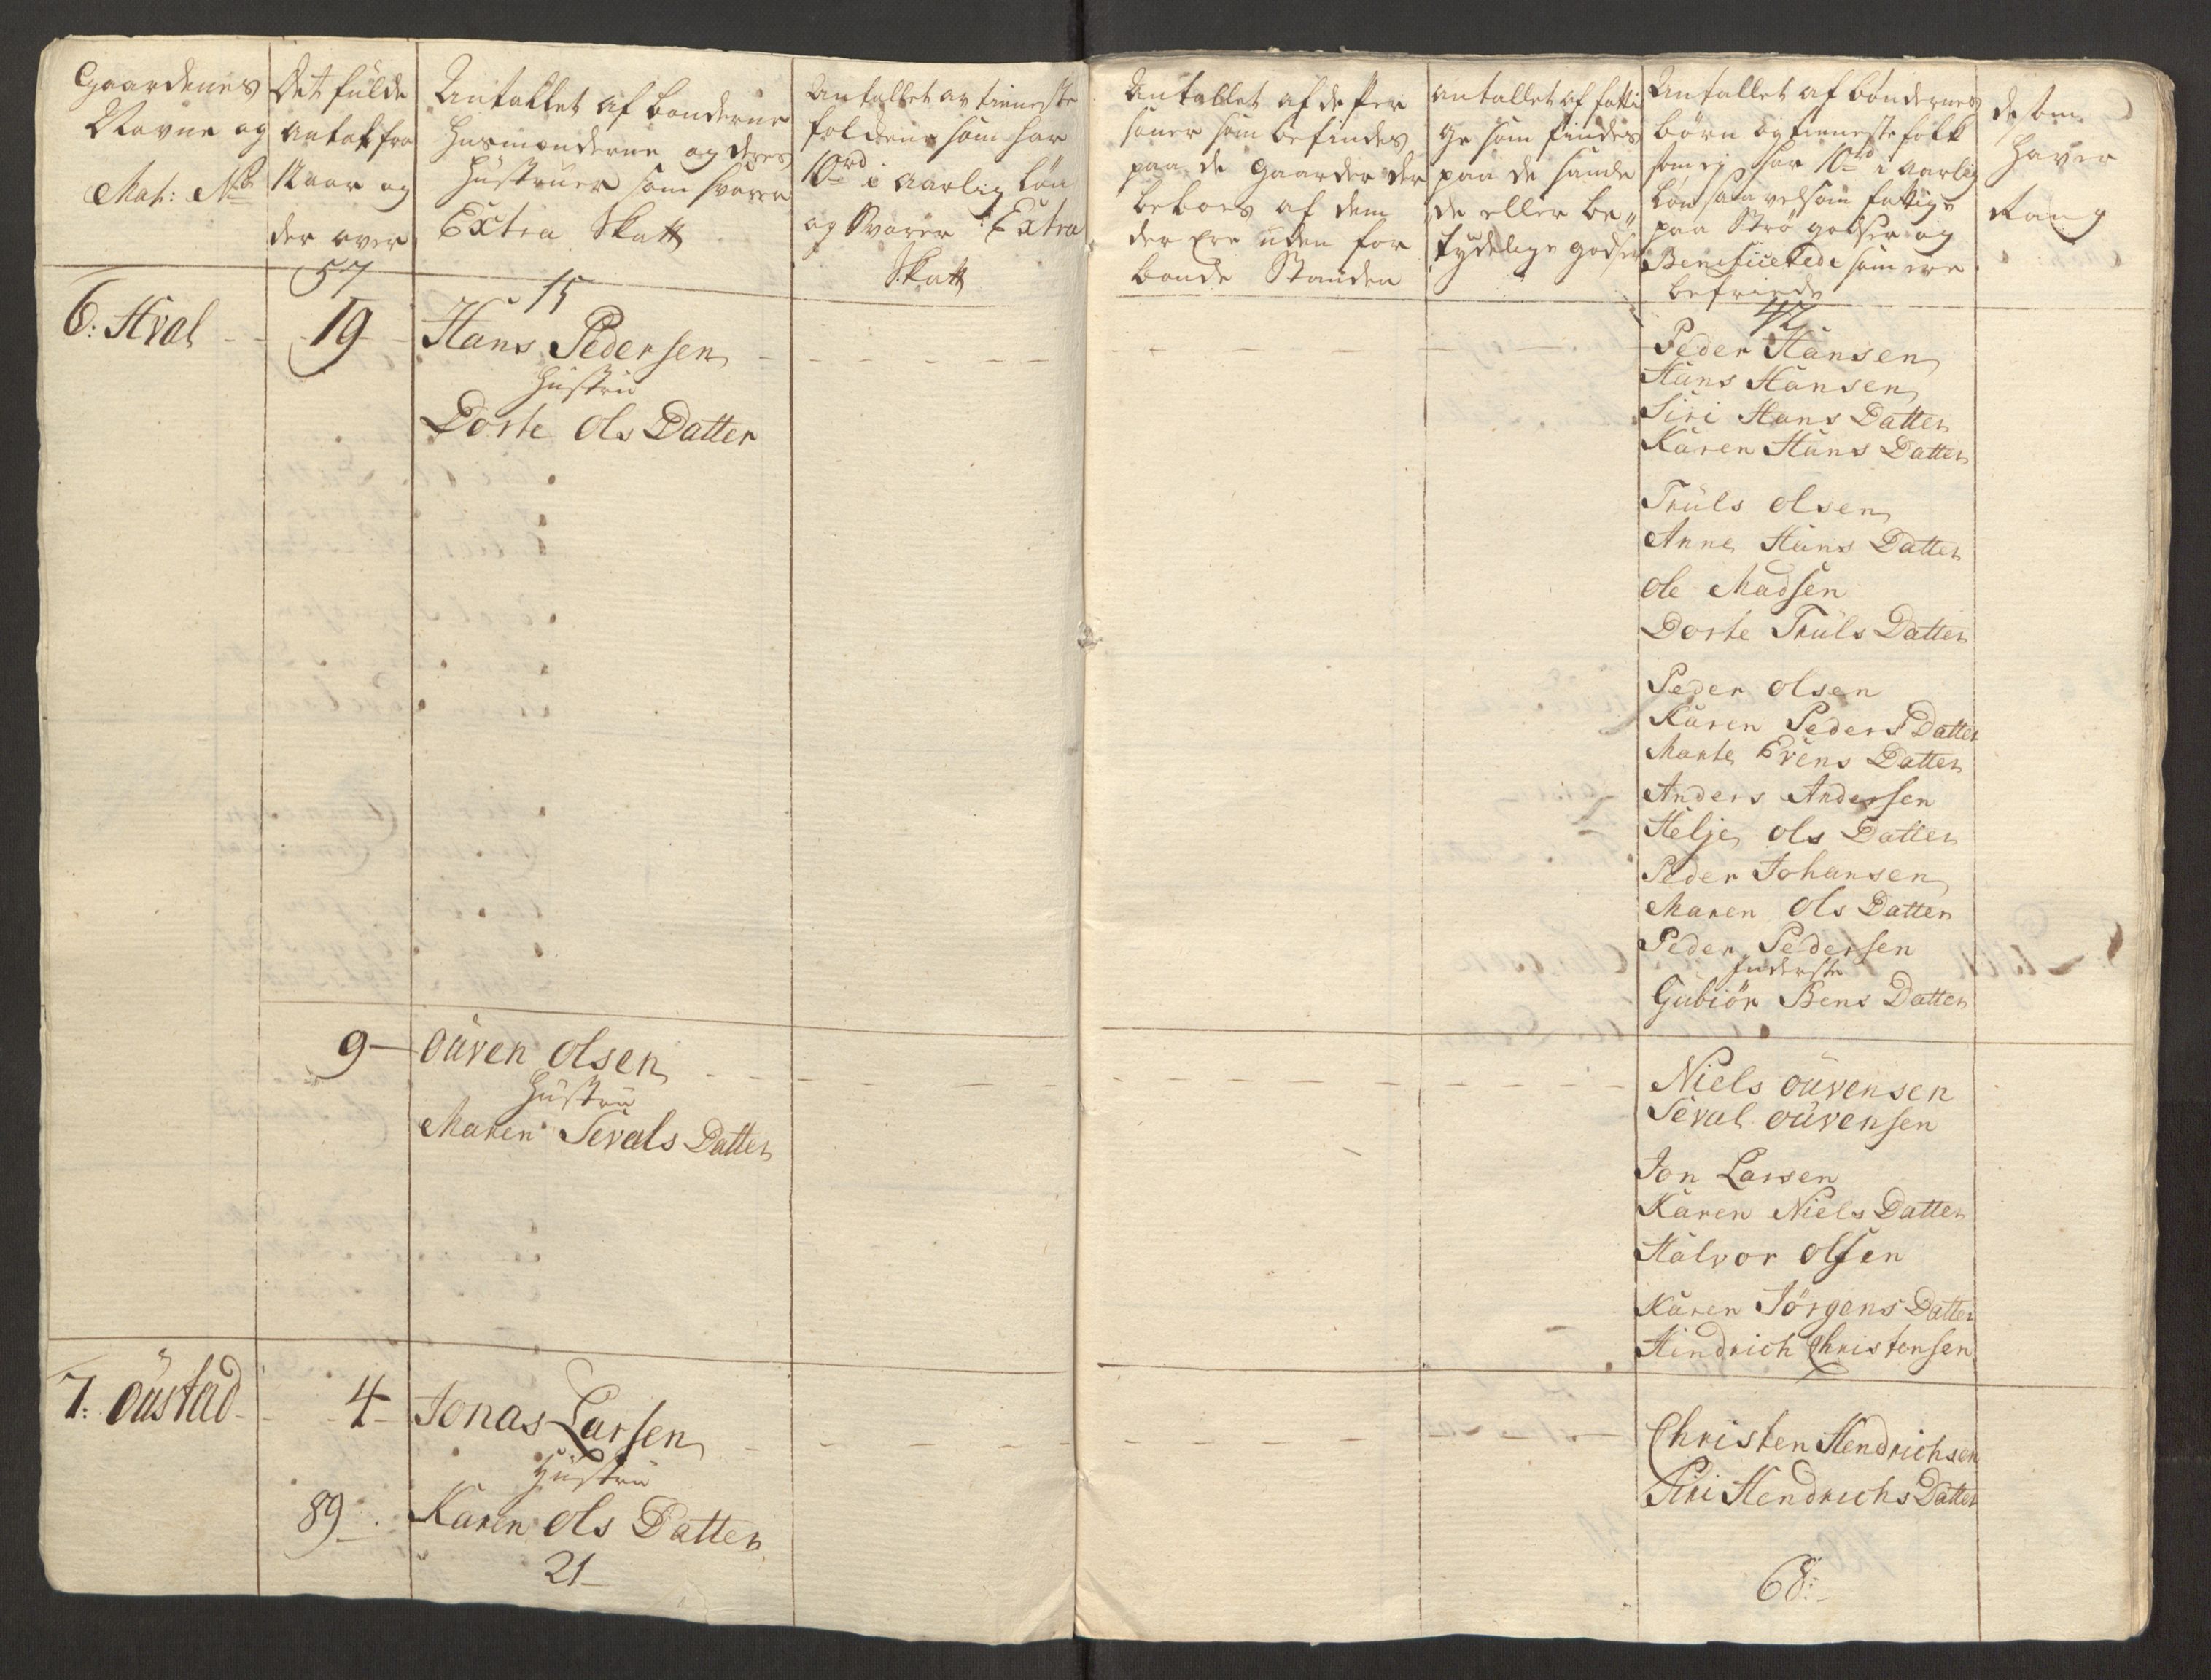 Gaardenes
Navne og
Mat: No
Det fulde
antal fra
12 aar og
der over
Antallet af bønderne
husmænderne og deres
hustruer som svarer
Extra Skatt
Antallet av tieneste
folckene som har
10rd i aarlig løn
og Svarer Extra
Skatt
Antallet af de Per
soner som befindes
paa de gaarder der
beboes af dem
der ere uden for
bonde Standen
antallet af fatti
ge som findes
paa de
de eller be„
tydelige godser
Antallet af bøndernes
børn og tieneste folk
som ej har 10rd i aarlig
løn saa velsom fattige
paa Strø godser og
Beneficerede som ere
befriede
de som
haver
Rang
57
15
42
6: Hval
19
Hans Pedersen
Hustru
Dorte Ols Datter
Peder Hansen
Hans Hansen
Siri Hans Datter
Karen Hans Datter
Truls Olsen
Anne Hans Datter
Ole Madsen
Dorte Truls Datter
Peder Olsen
Karen Peders Datter
Marte Evens Datter
Anders Andersen
Helje Ols Datter
Peder Johansen
Maren Ols Datter
Peder Pedersen
Inderste
Gubiør Bens Datter
9
Ouven Olsen
Hustru
Maren Sevals Datter
Niels Ouvensen
Seval Ouvensen
Jon Larsen
Karen Niels Datter
Halvor Olsen
Karen Jørgens Datter
Hindrich Christensen
7: Oustad
4
Jonas Larsen
Hustru
Karen Ols Datter
Christen Hendrichsen
Siri Hendrichs Datter
89
21
68: